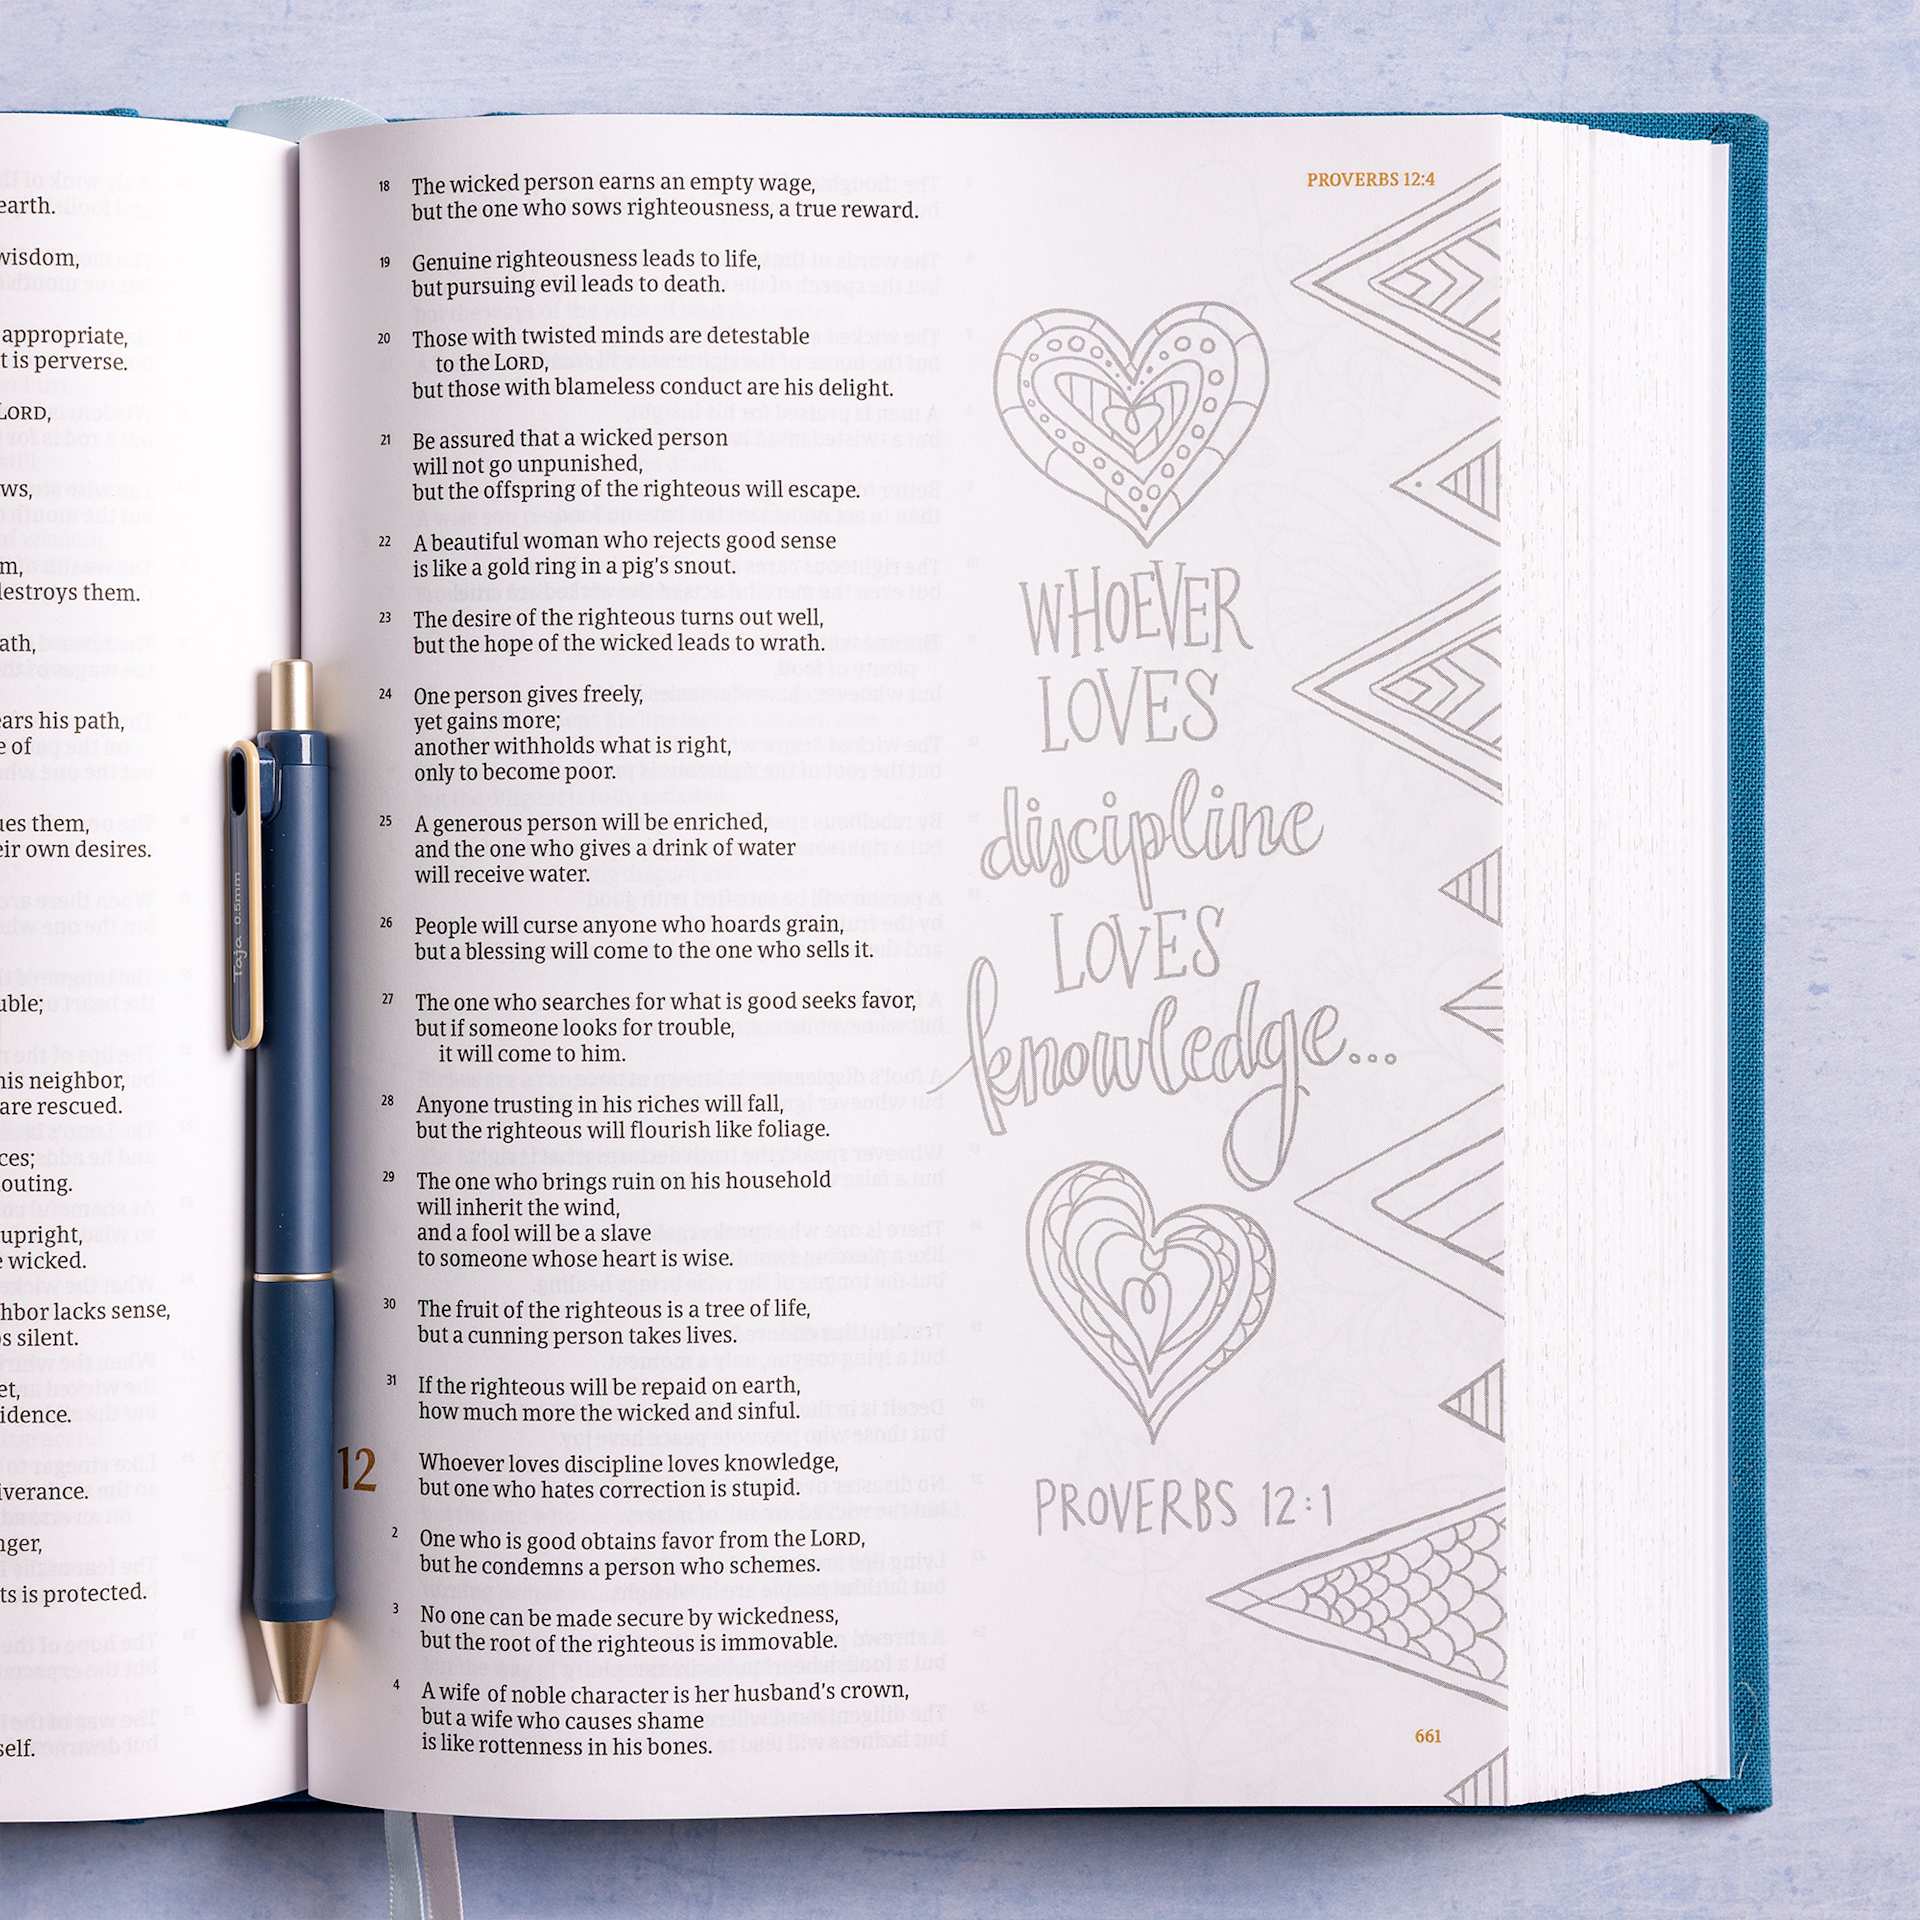 earth.
wisdom,
appropriate,
t is perverse.
LORD,
ws,
m,
destroys them.
ath,
ears his path,
e of
ues them,
eir own desires.
uble;
his neighbor,
are rescued.
ces;
outing.
upright,
e wicked.
hbor lacks sense,
ps silent.
et,
idence.
iverance.
nger,
ts is protected.
self.
Taja 0.5mm
PROVERBS 12:4
18 The wicked person earns an empty wage,
but the one who sows righteousness, a true reward.
19 Genuine righteousness leads to life,
but pursuing evil leads to death.
20 Those with twisted minds are detestable
to the LORD,
but those with blameless conduct are his delight.
21 Be assured that a wicked person
will not go unpunished,
but the offspring of the righteous will escape.
22 A beautiful woman who rejects good sense
is like a gold ring in a pig's snout.
23 The desire of the righteous turns out well,
but the hope of the wicked leads to wrath.
24 One person gives freely,
yet gains more;
another withholds what is right,
only to become poor.
25 A generous person will be enriched,
and the one who gives a drink of water
will receive water.
26 People will curse anyone who hoards grain,
but a blessing will come to the one who sells it.
27 The one who searches for what is good seeks favor,
but if someone looks for trouble,
it will come to him.
28 Anyone trusting in his riches will fall,
but the righteous will flourish like foliage.
29 The one who brings ruin on his household
will inherit the wind,
and a fool will be a slave
to someone whose heart is wise.
30 The fruit of the righteous is a tree of life,
but a cunning person takes lives.
31 If the righteous will be repaid on earth,
how much more the wicked and sinful.
12 Whoever loves discipline loves knowledge,
but one who hates correction is stupid.
2 One who is good obtains favor from the LORD,
but he condemns a person who schemes.
3 No one can be made secure by wickedness,
but the root of the righteous is immovable.
4 A wife of noble character is her husband's crown,
but a wife who causes shame
is like rottenness in his bones.
WHOEVER
LOVES
discipline
LOVES
knowledge...
PROVERBS 12:1
661